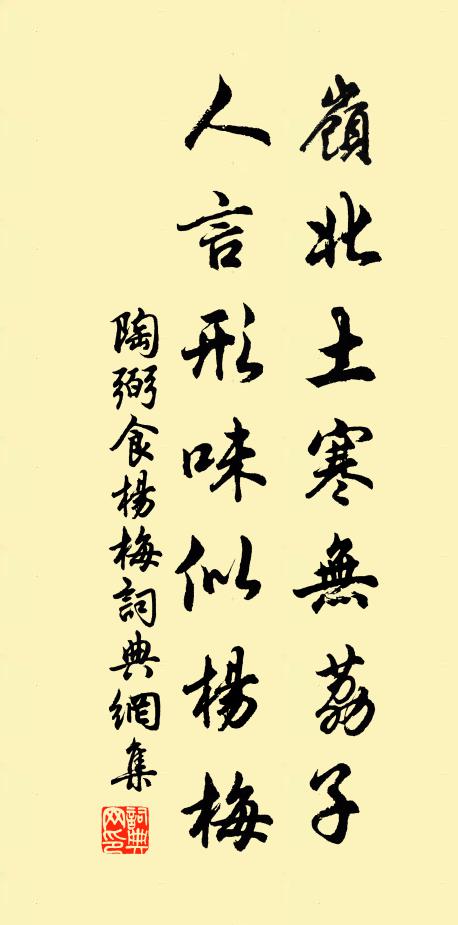 嶺北土寒無荔子
人言形味似楊梅
陶弼食楊梅詞典網集
詞典網印